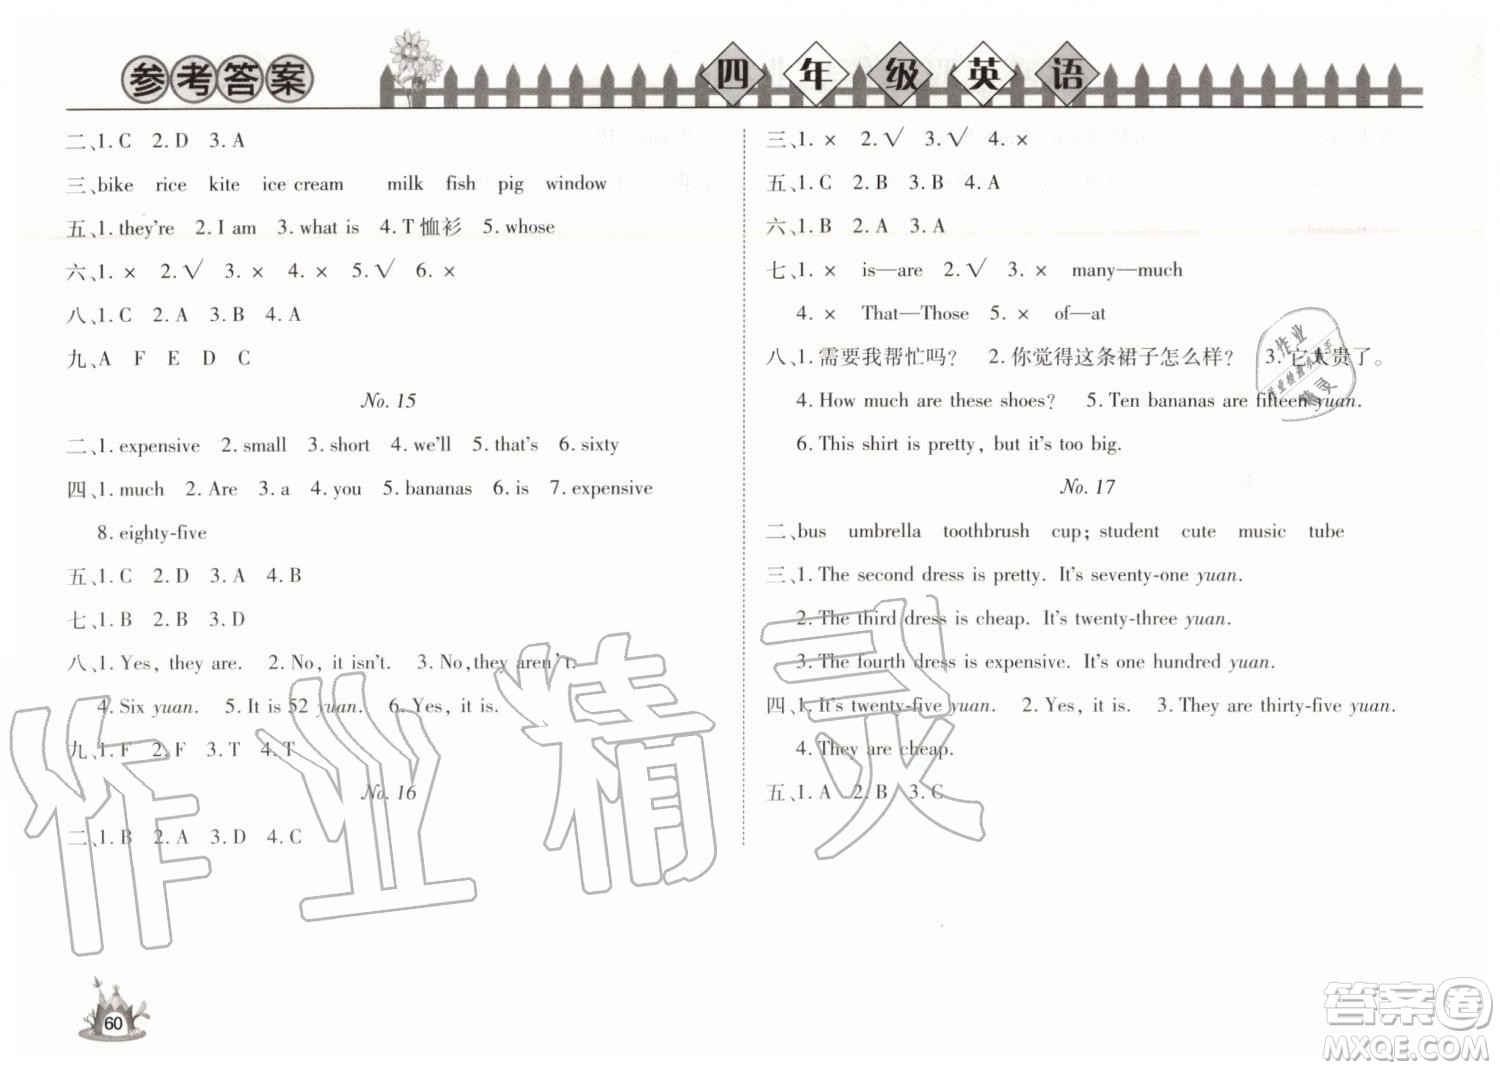 参考答案
四年级英语
二、1. C 2. D 3. A
三、bike rice kite ice cream milk fish pig window
五、1. they're 2. I am 3. what is 4. T恤衫 5. whose
六、1. × 2. √ 3. × 4. × 5. √ 6. ×
八、1. C 2. A 3. B 4. A
九、A F E D C
No. 15
二、1. expensive 2. small 3. short 4. we'll 5. that's 6. sixty
四、1. much 2. Are 3. a 4. you 5. bananas 6. is 7. expensive
8. eighty-five
五、1. C 2. D 3. A 4. B
七、1. B 2. B 3. D
八、1. Yes, they are. 2. No, it isn't. 3. No, they aren't.
4. Six yuan. 5. It is 52 yuan. 6. Yes, it is.
九、1. F 2. F 3. T 4. T
No. 16
二、1. B 2. A 3. D 4. C
三、1. × 2. √ 3. √ 4. ×
五、1. C 2. B 3. B 4. A
六、1. B 2. A 3. A
七、1. × is—are 2. √ 3. × many—much
4. × That—Those 5. × of—at
八、1. 需要我帮忙吗？ 2. 你觉得这条裙子怎么样？ 3. 它太贵了。
4. How much are these shoes? 5. Ten bananas are fifteen yuan.
6. This shirt is pretty, but it's too big.
No. 17
二、bus umbrella toothbrush cup; student cute music tube
三、1. The second dress is pretty. It's seventy-one yuan.
2. The third dress is cheap. It's twenty-three yuan.
3. The fourth dress is expensive. It's one hundred yuan.
四、1. It's twenty-five yuan. 2. Yes, it is. 3. They are thirty-five yuan.
4. They are cheap.
五、1. A 2. B 3. C
作业精灵
作业
作业检查小助手
精灵
60
答案圈
MXQE.COM